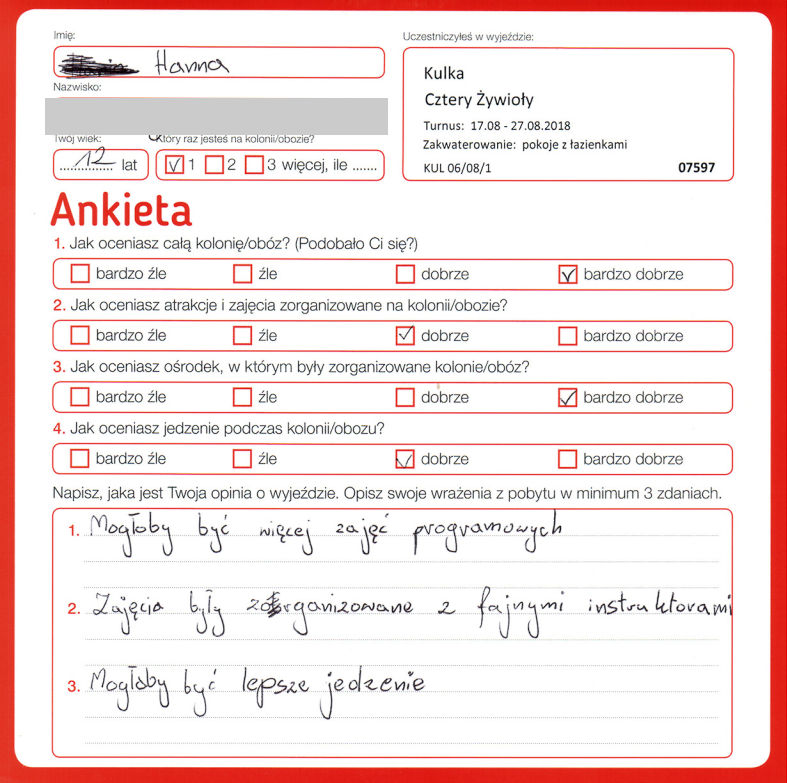 Imię:
Hanna
Nazwisko:
Twój wiek:
Który raz jesteś na kolonii/obozie?
12 lat
1 2 3 więcej, ile .......
Uczestniczyłeś w wyjeździe:
Kulka
Cztery Żywioły
Turnus: 17.08 - 27.08.2018
Zakwaterowanie: pokoje z łazienkami
KUL 06/08/1 07597
Ankieta
1. Jak oceniasz całą kolonię/obóz? (Podobało Ci się?)
bardzo źle źle dobrze bardzo dobrze
2. Jak oceniasz atrakcje i zajęcia zorganizowane na kolonii/obozie?
bardzo źle źle dobrze bardzo dobrze
3. Jak oceniasz ośrodek, w którym były zorganizowane kolonie/obóz?
bardzo źle źle dobrze bardzo dobrze
4. Jak oceniasz jedzenie podczas kolonii/obozu?
bardzo źle źle dobrze bardzo dobrze
Napisz, jaka jest Twoja opinia o wyjeździe. Opisz swoje wrażenia z pobytu w minimum 3 zdaniach.
1. Mogłoby być więcej zajęć programowych
2. Zajęcia były zorganizowane z fajnymi instruktorami
3. Mogłoby być lepsze jedzenie